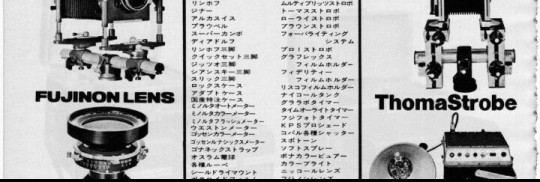 リンホフ
ジナー
アルカスイス
プラウベル
スーパーカンボ
ディアドルフ
リンホフ三脚
クイックセット三脚
ジッツオ三脚
シアンスキー三脚
スリック三脚
ロックケース
アダプトケース
国産特注ケース
ミノルタオートメーター
ミノルタカラーメーター
ミノルタフラッシュメーター
ウエストンメーター
ゴッセンカラーメーター
ゴッセルナシックスメーター
ゴナネックストラップ
オスラム電球
各種ルーペ
シールドライマウント
FUJINON LENS
ムルティブリッツストロボ
トーマスストロボ
ローライストロボ
ブラウンストロボ
フォーバライティング
システム
プロ!ストロボ
グラフレックス
フィルムホルダー
フィデリティー
フィルムホルダー
リスコフィルムホルダー
ナイコールタンク
グララボタイマー
タイムオーライトタイマー
フジフォトタイマー
KPSプロシェード
コパル各種シャッター
スポトーン
ソフトスプレー
ボナカラービュアー
カラーブライト
ニッコールレンズ
フジノンレンズ
ThomaStrobe